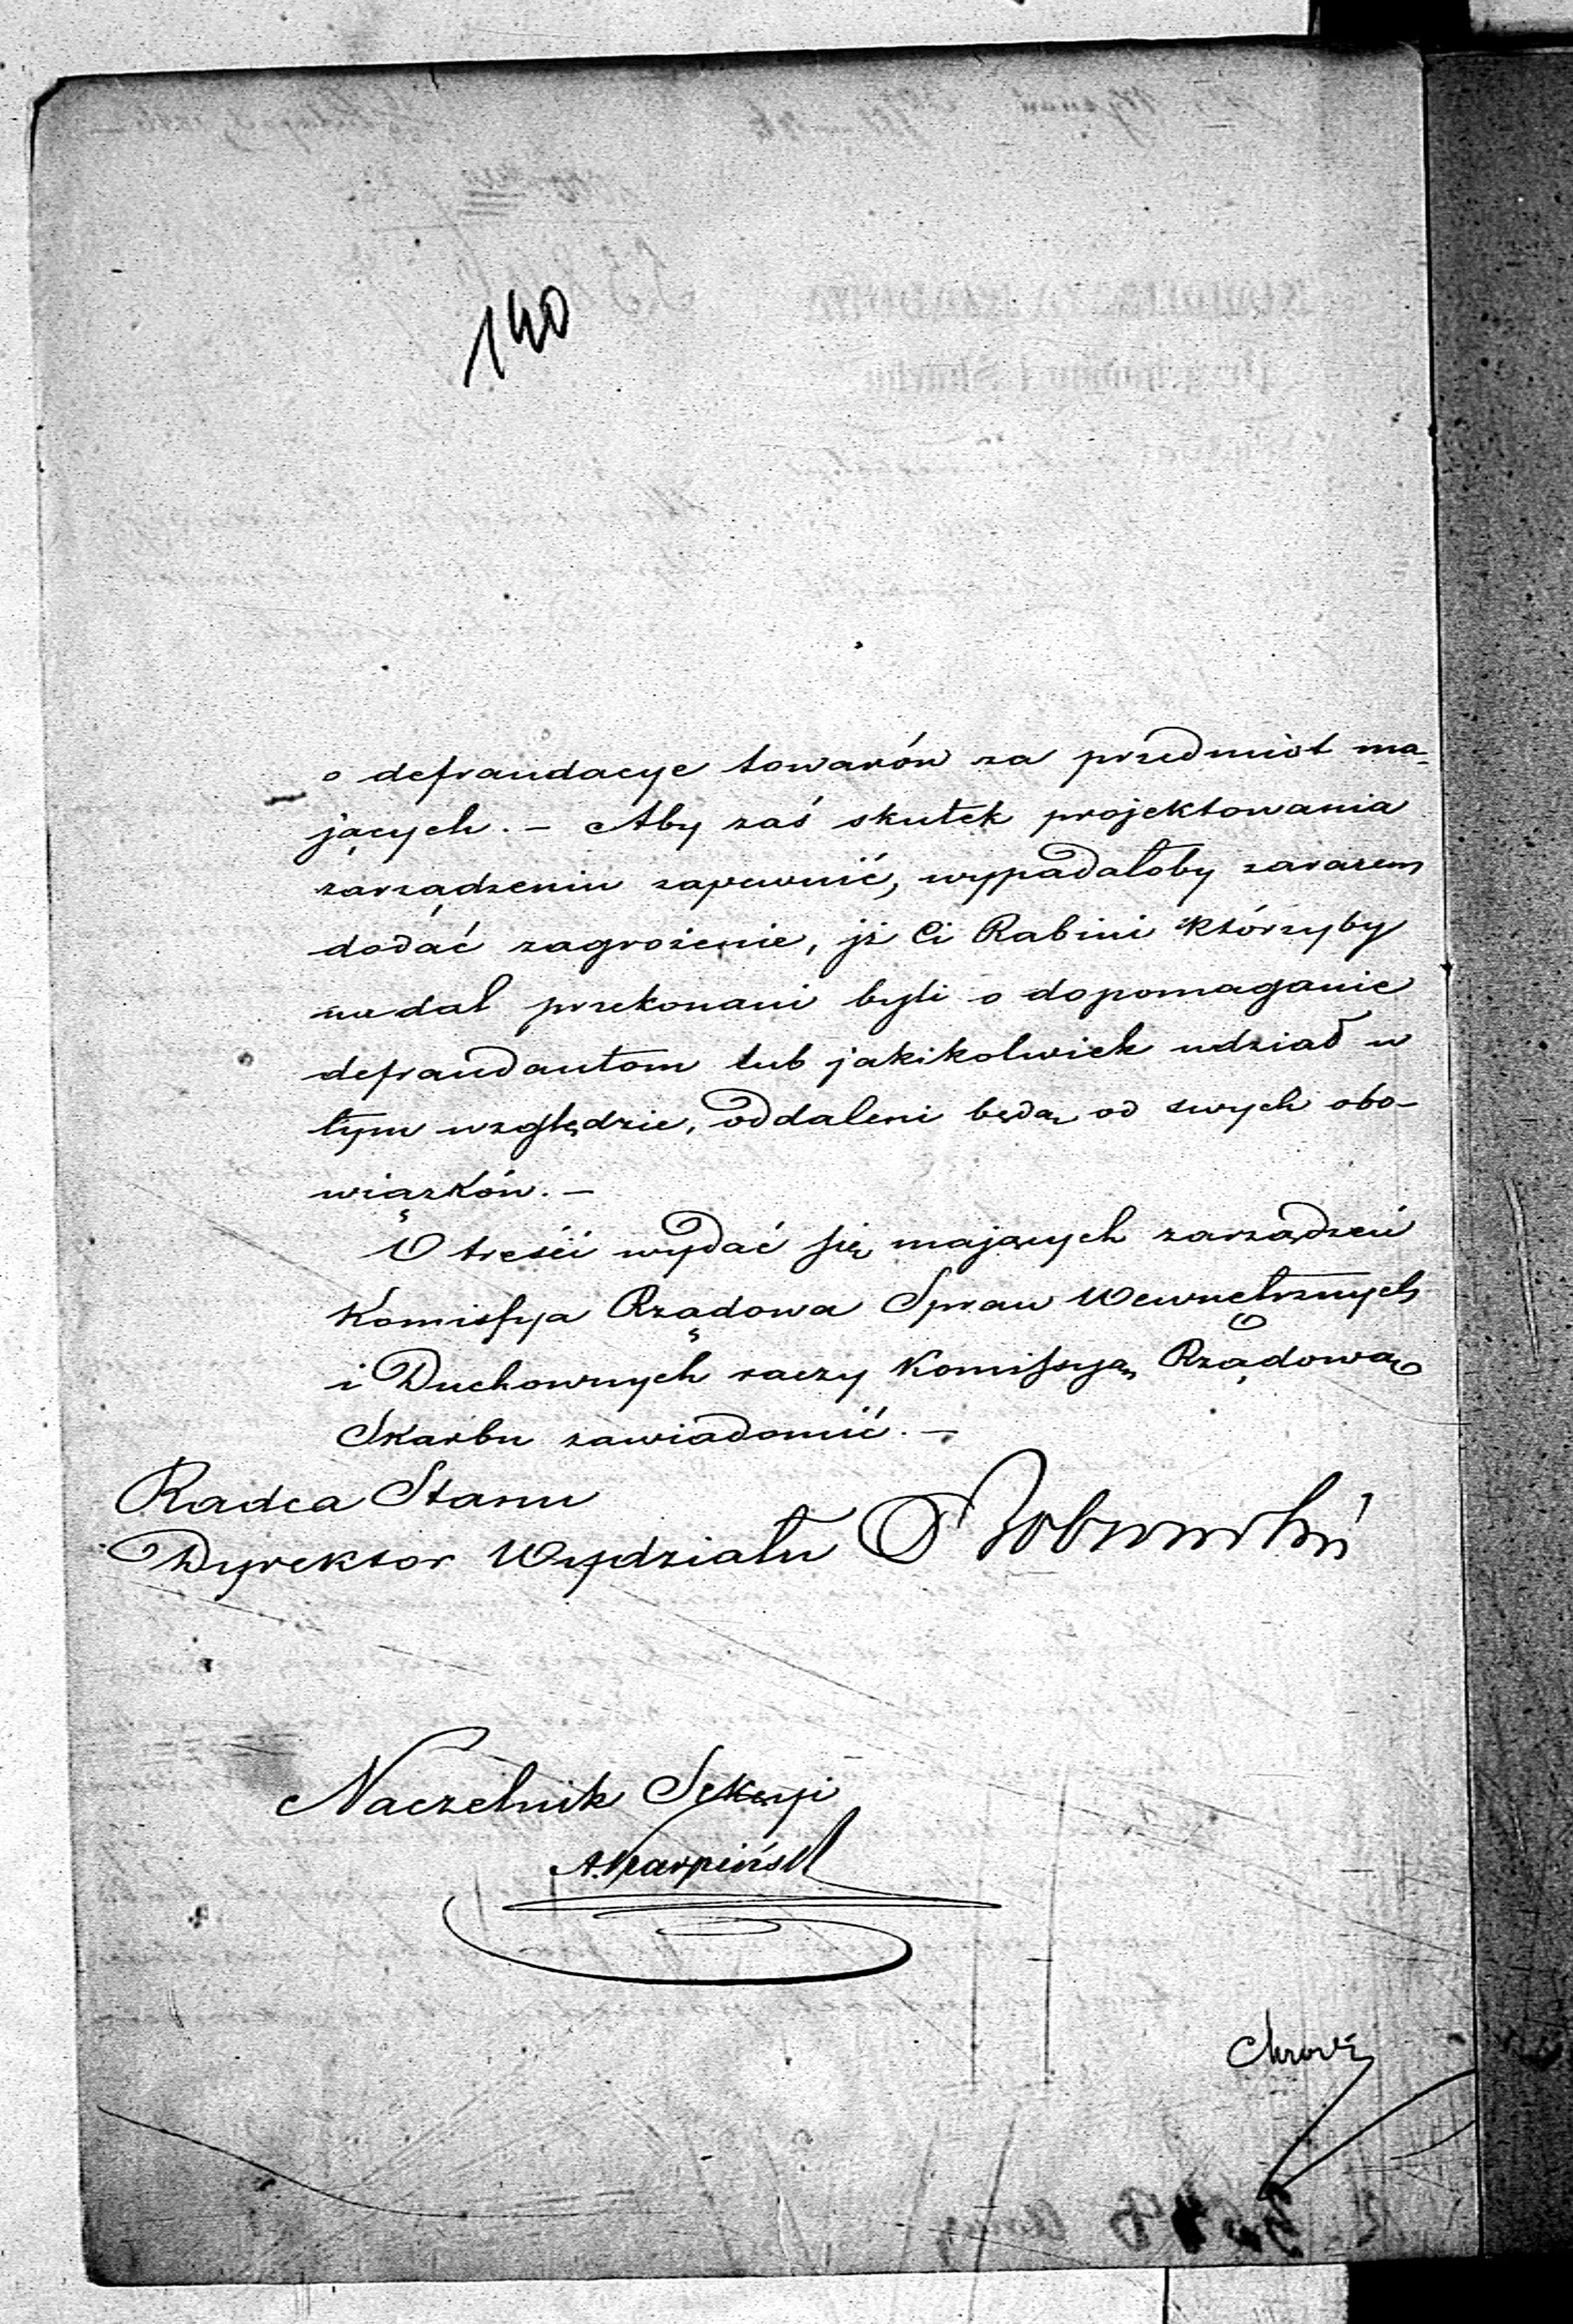 140
o defraudacye towarów za przedmiot ma-
jących. – Aby zaś skutek projektowania
zarządzeniu zapewnić, wypadałoby zarazem
dodać zagrożenie, jż Ci Rabini którzyby
nadal przekonani byli o dopomaganie
defraudantom lub jakikolwiek udział w
tym względzie, oddaleni będą od swych obo-
wiązków. –
O treści wydać się mających zarządzeń
Komissya Rządowa Spraw Wewnętrznych
i Duchownych raczy Komissyą Rządową
Skarbu zawiadomić. –
Radca Stanu
Dyrektor Wydziału
Naczelnik Sekcyi
A. Karpiński